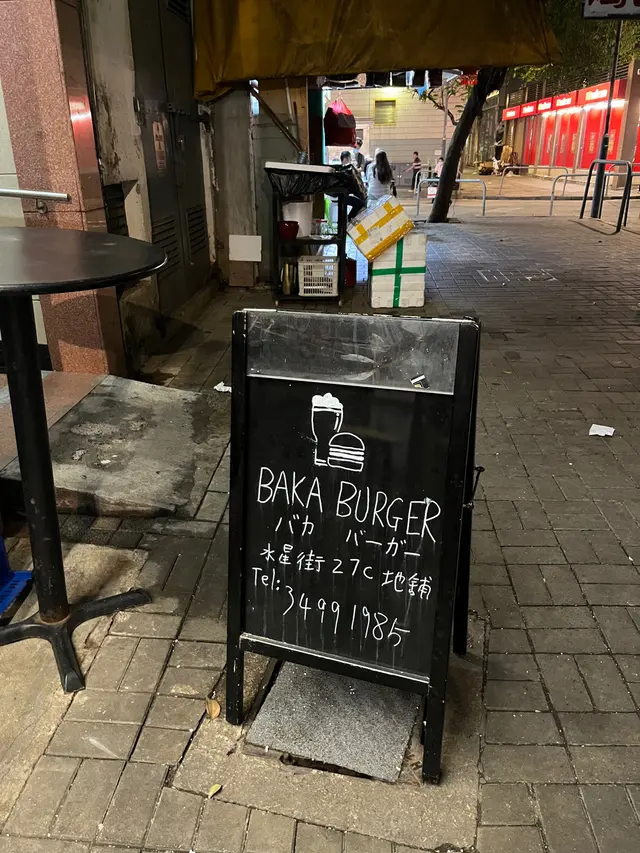 BAKA BURGER
バカ バーガー
水星街 27C 地舖
Tel: 3499 1985